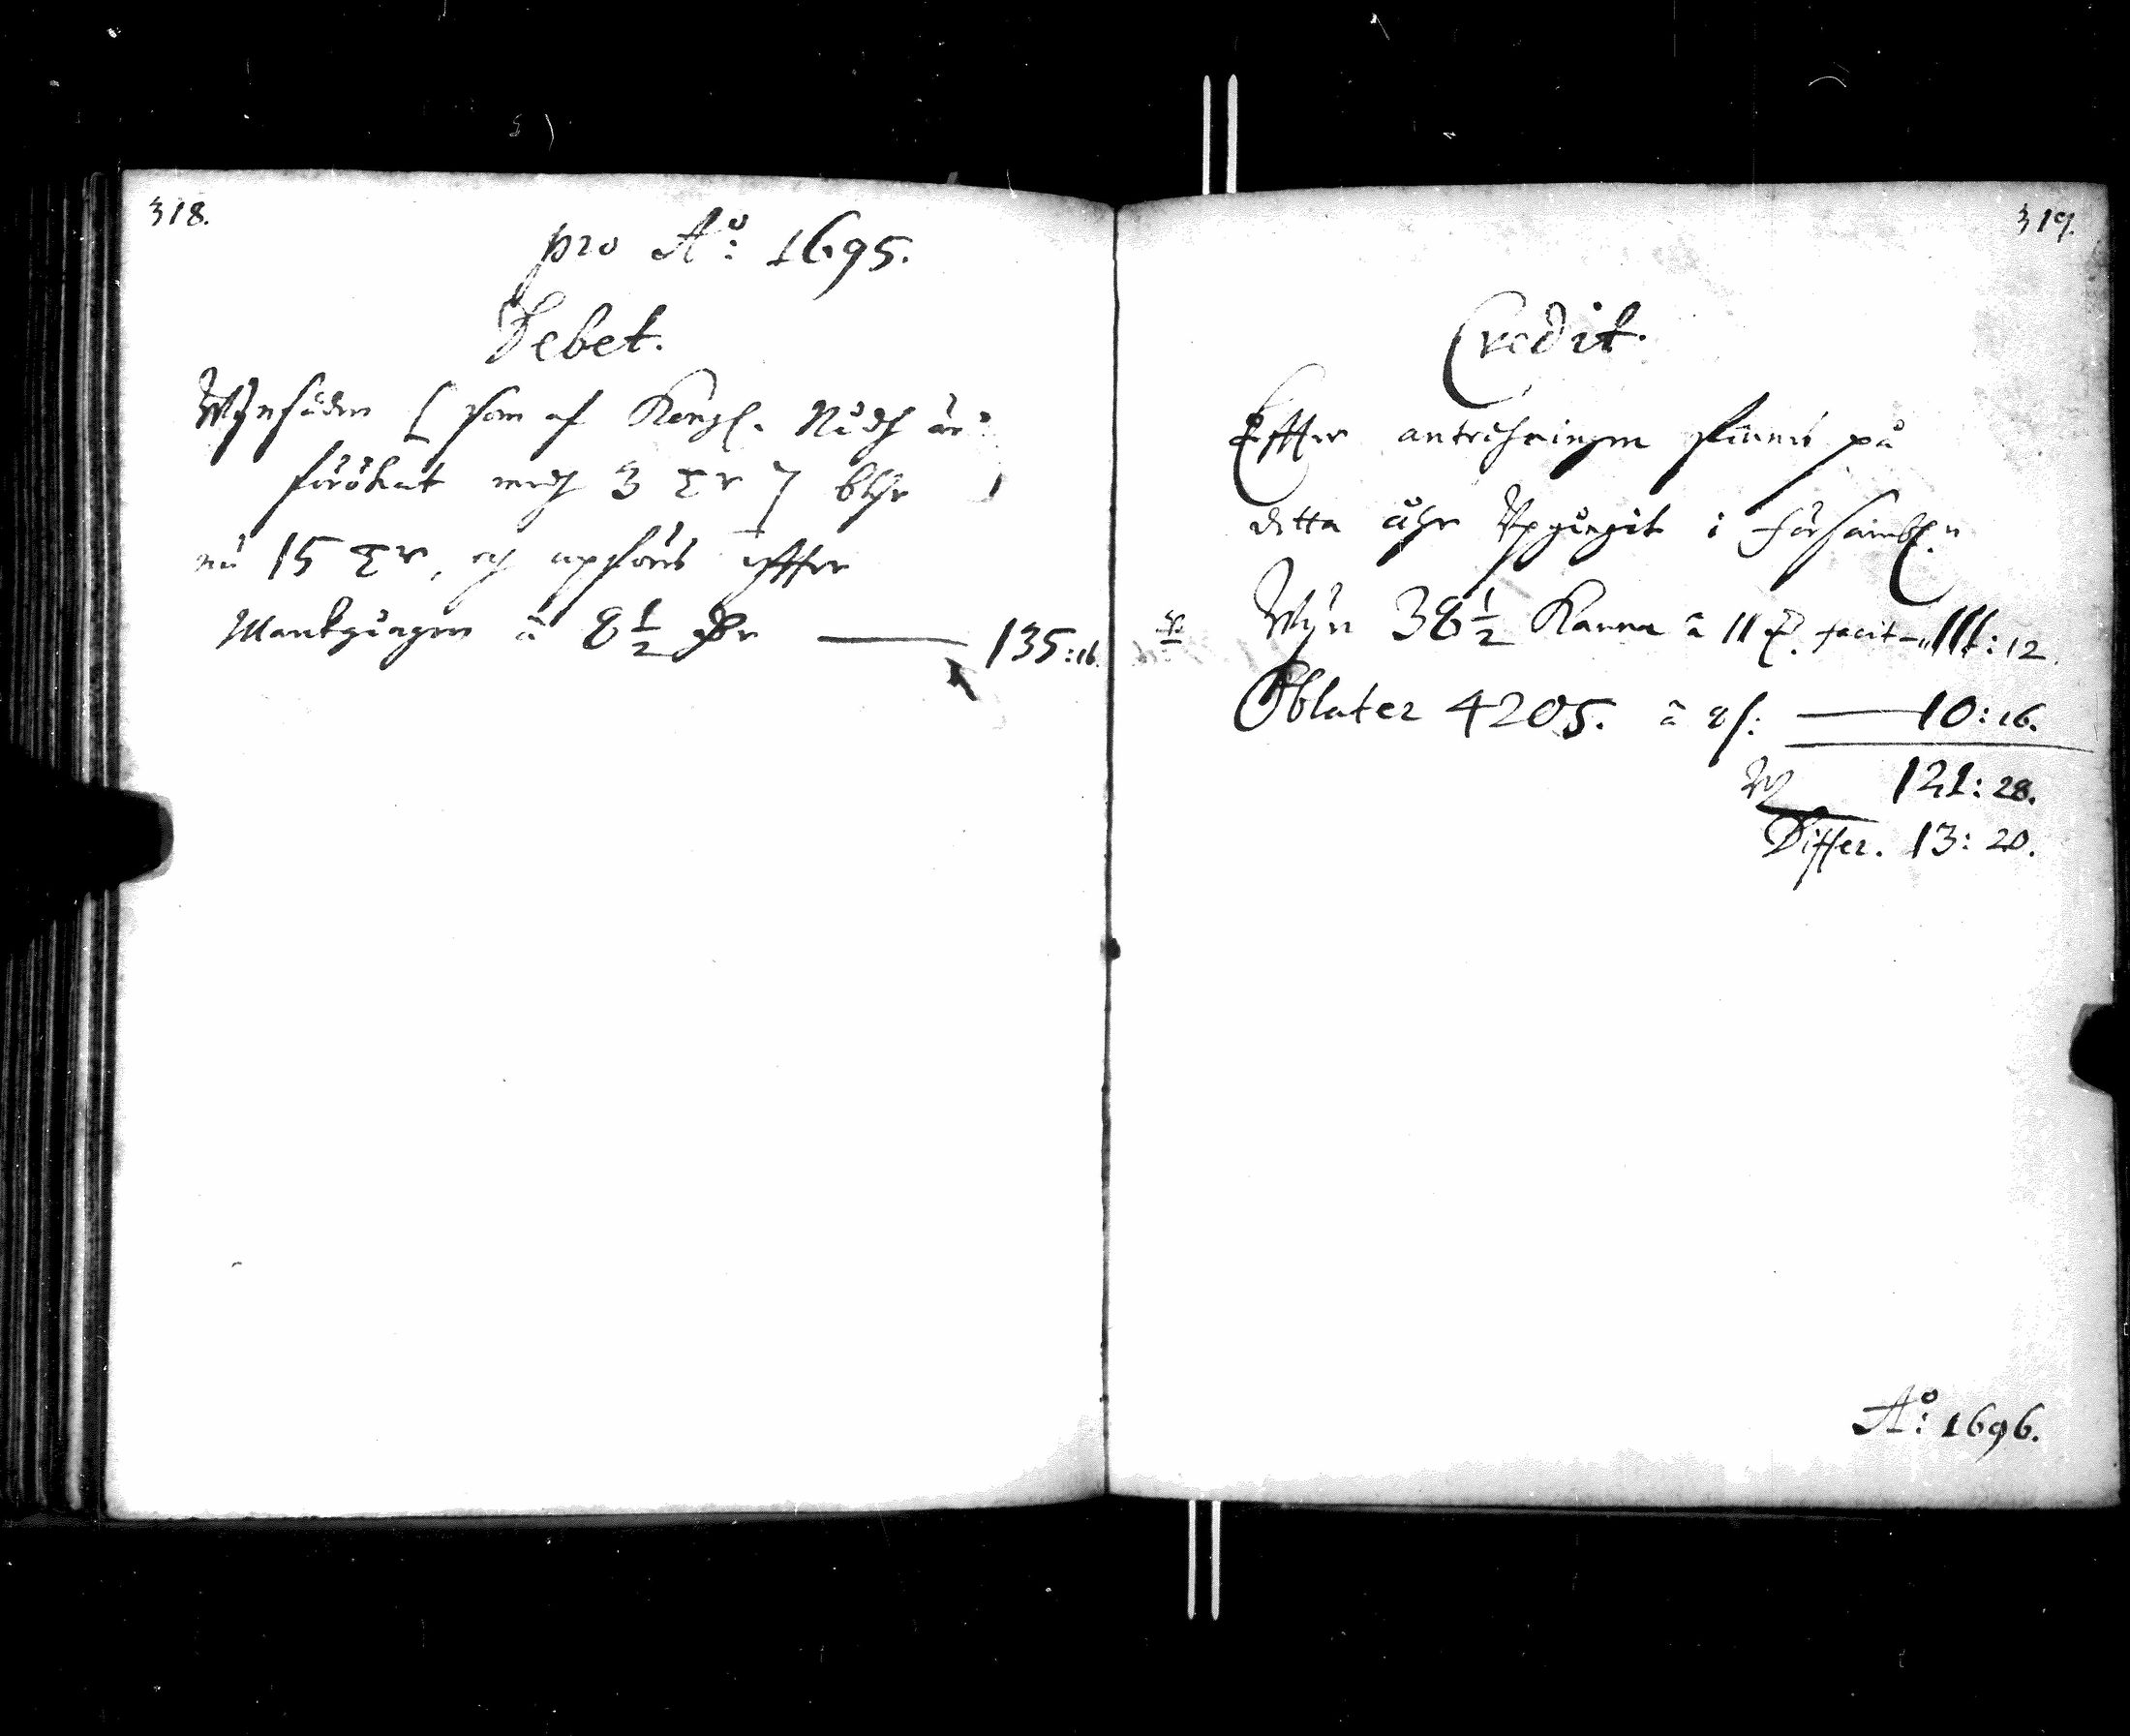 318.
pro Aº: 1695.
Debet.
Wijnsäden (som af Kongl. Nådh är
förökat medh 3 Tr 7 
nu 15 Tr, och opföres effter
Markgången â 8 1/2 — 135:16
319.
Credit.
Effter antechningen finnes på
detta åhr Upgångit i försambl:n
Wijn 38 1/2 Kanna â 11 facit — 111:12.
Oblater 4205. â 8 — 10:16.
121:28.
Differ. 13:20.
Aº: 1696.